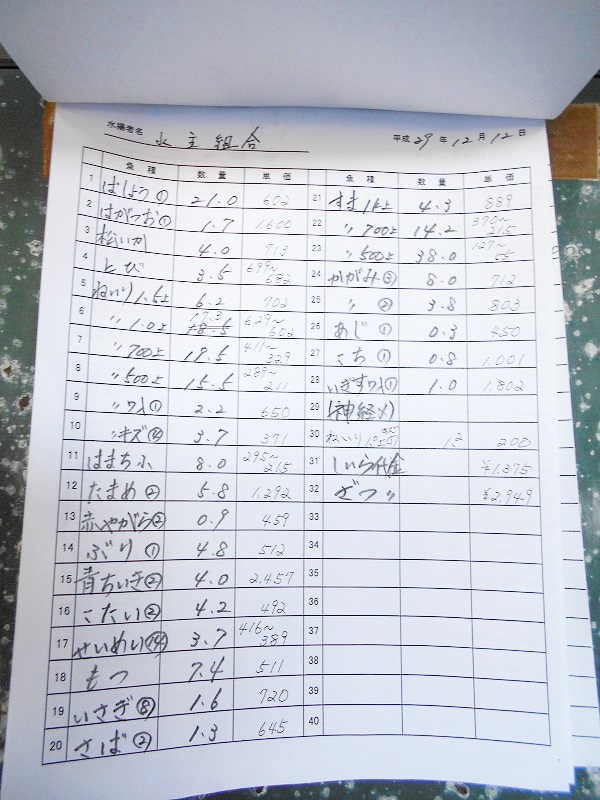 水揚者名 水主組合 平成29年12月12日
魚種 数量 単価 魚種 数量 単価
1 ばしょう① 21.0 602
2 はがつお① 1.7 1,600
3 松いか 4.0 713
4 とび 3.5 699~682
5 ねいり1.5上 6.2 702
6 〃1.0上 17.3 629~602
7 〃700上 19.5 411~329
8 〃500上 15.5 289~211
9 〃ワレ① 2.2 650
10 〃キズ④ 3.7 371
11 はまち小 8.0 295~215
12 たまめ② 5.8 1,292
13 赤やがら② 0.9 459
14 ぶり① 4.8 512
15 青ちいき② 4.0 2,457
16 こたい② 4.2 492
17 せいめい⑭ 3.7 416~389
18 もつ 7.4 511
19 いさぎ⑧ 1.6 720
20 さば② 1.3 645
21 すま1k上 4.3 889
22 〃700上 14.2 370~215
23 〃500上 38.0 127~
24 かがみ③ 8.0 712
25 〃② 3.8 803
26 あじ① 0.3 450
27 こち① 0.8 1,001
28 いぎすワレ① 1.0 1,802
29 (神経〆)
30 ねいり 1.2 200
31 しいら代金 ¥1,375
32 ざつ ¥2,949
33
34
35
36
37
38
39
40